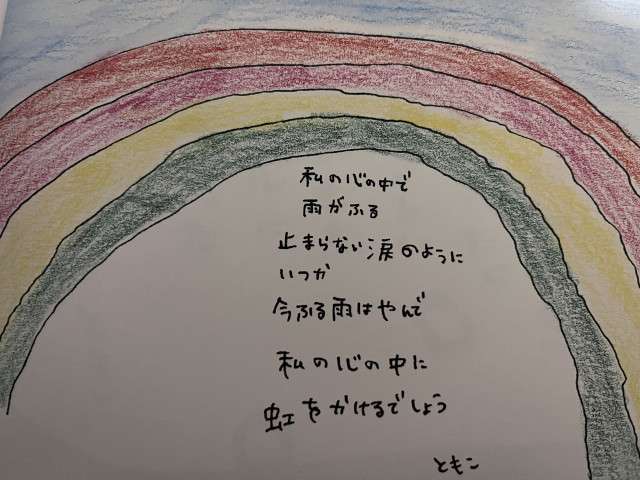 私の心の中で
雨がふる
止まらない涙のように
いつか
今ふる雨はやんで
私の心の中に
虹をかけるでしょう
ともこ